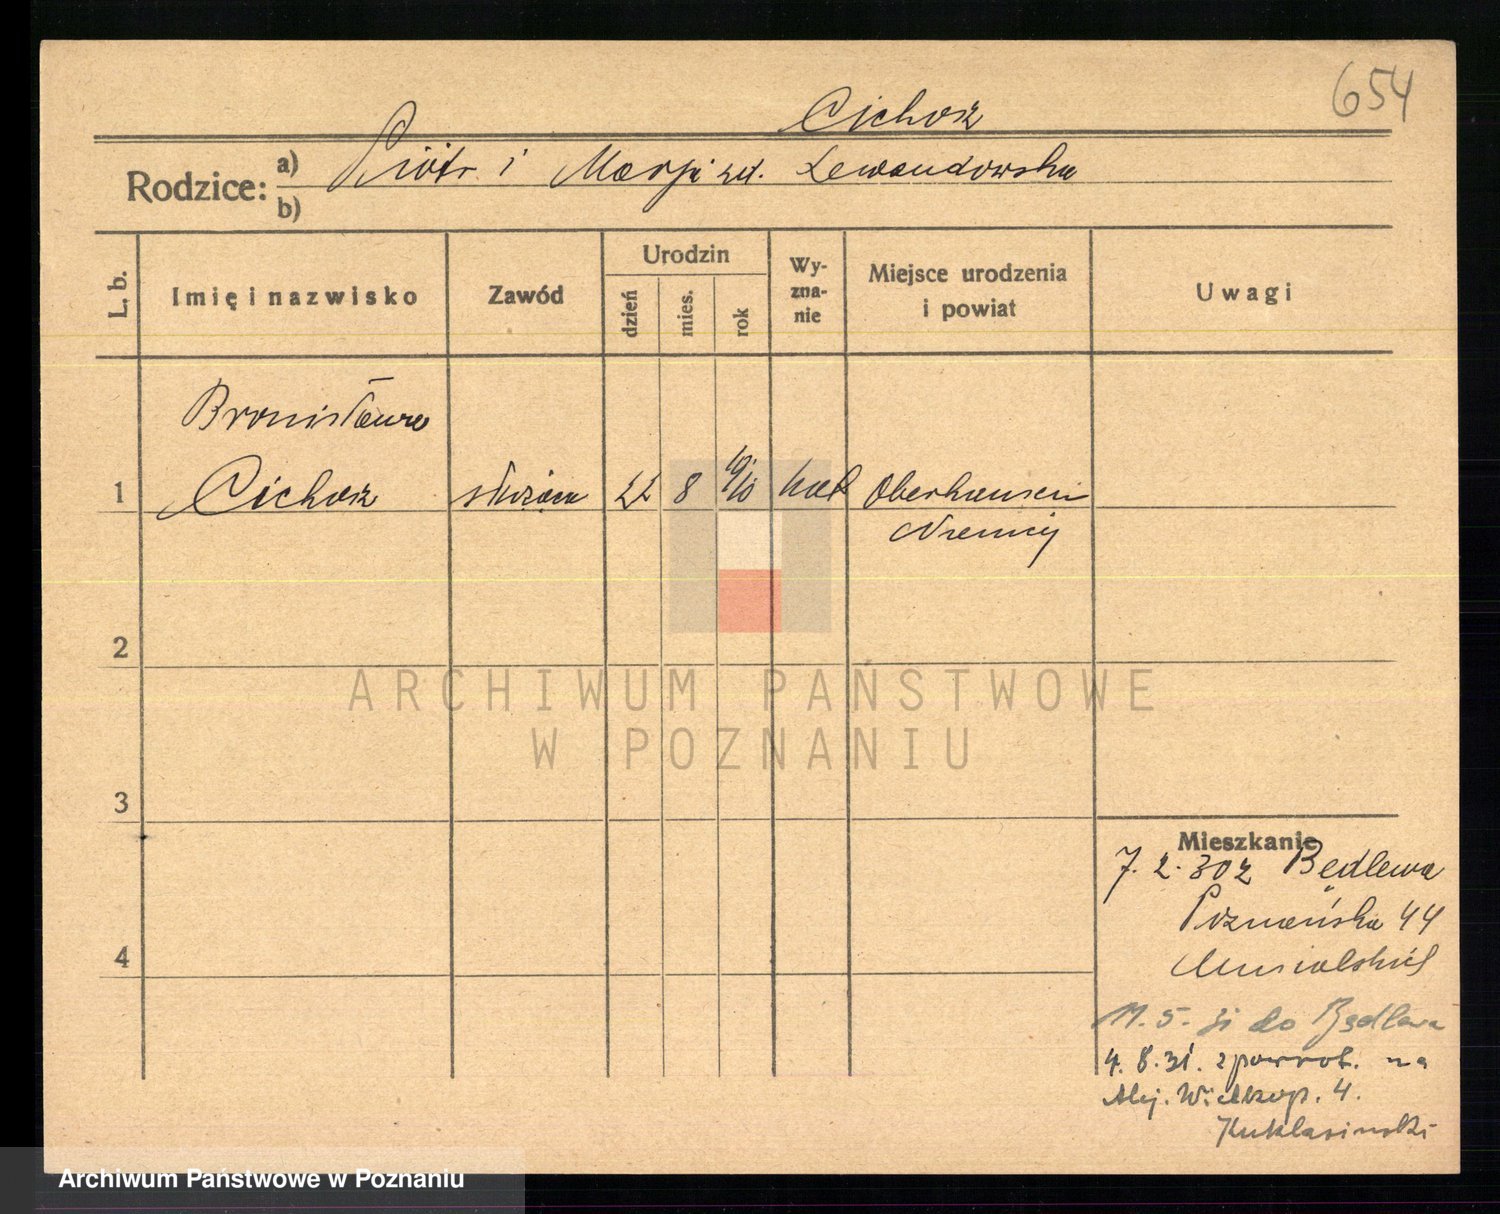 654
Cichosz
Rodzice: a) Piotr i Marja zd. Lewandowska
b)
L. b.
Imię i nazwisko
Zawód
Urodzin
dzień
mies.
rok
Wy-
zna-
nie
Miejsce urodzenia
i powiat
Uwagi
Bronisława
1 Cichosz służąca 22 8 10 kat Oberhausen
Niemcy
2
3
4
Mieszkanie
7. 2. 30 z Będlewa
Poznańska 44
Musialski
11. 5. 31 do Będlewa
4. 8. 31. zpowrot. na
Alej. Wielkop. 4.
Kuklasinski
ARCHIWUM PAŃSTWOWE
W POZNANIU
Archiwum Państwowe w Poznaniu